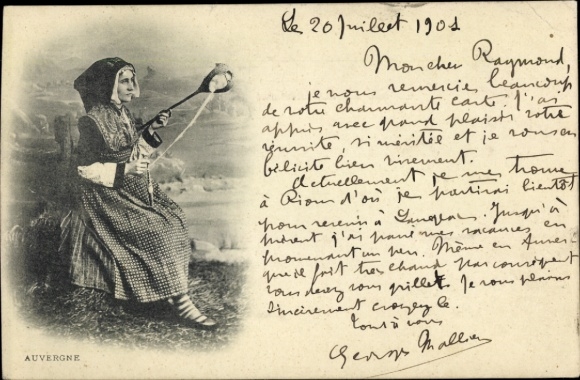 Le 20 Juillet 1901
Mon cher Raymond,
je vous remercie beaucoup
de votre charmante carte. J'ai
appris avec grand plaisir votre
réussite, si méritée et je vous en
félicite bien vivement.
Actuellement je me trouve
à Riom d'où je partirai bientôt
pour revenir à Langeac. Jusqu'à
présent j'ai passé mes vacances en
promenant un peu. Même en Auver
gne il fait très chaud par conséquent
vous devez vous griller. Je vous plains
sincèrement croyez le.
Tout à vous
Georges
AUVERGNE